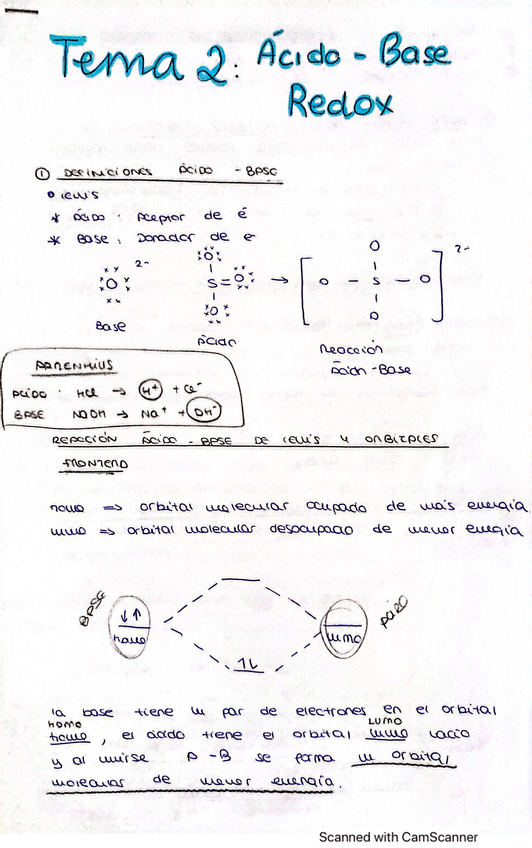 Tema 2: Ácido - Base
Redox
① DEFINICIONES ÁCIDO - BASE
• LEWIS
* ÁCIDO : Aceptor de e⁻
* BASE : Donador de e⁻
O 2-
Base
O
S = O
O
Ácido
→
O
O - S - O
O
2-
Reacción
Ácido - Base
ARRENHIUS
ÁCIDO : HCl → H⁺ + Cl⁻
BASE : NaOH → Na⁺ + OH⁻
REACCIÓN ÁCIDO - BASE DE LEWIS Y ORBITALES
FRONTERA
HOMO => orbital molecular ocupado de más energía
LUMO => orbital molecular desocupado de menor energía
BASE
HOMO
LUMO
ÁCIDO
la base tiene un par de electrones en el orbital
HOMO LUMO
homo, el ácido tiene el orbital lumo vacío
y al unirse A - B se forma un orbital
molecular de menor energía.
Scanned with CamScanner